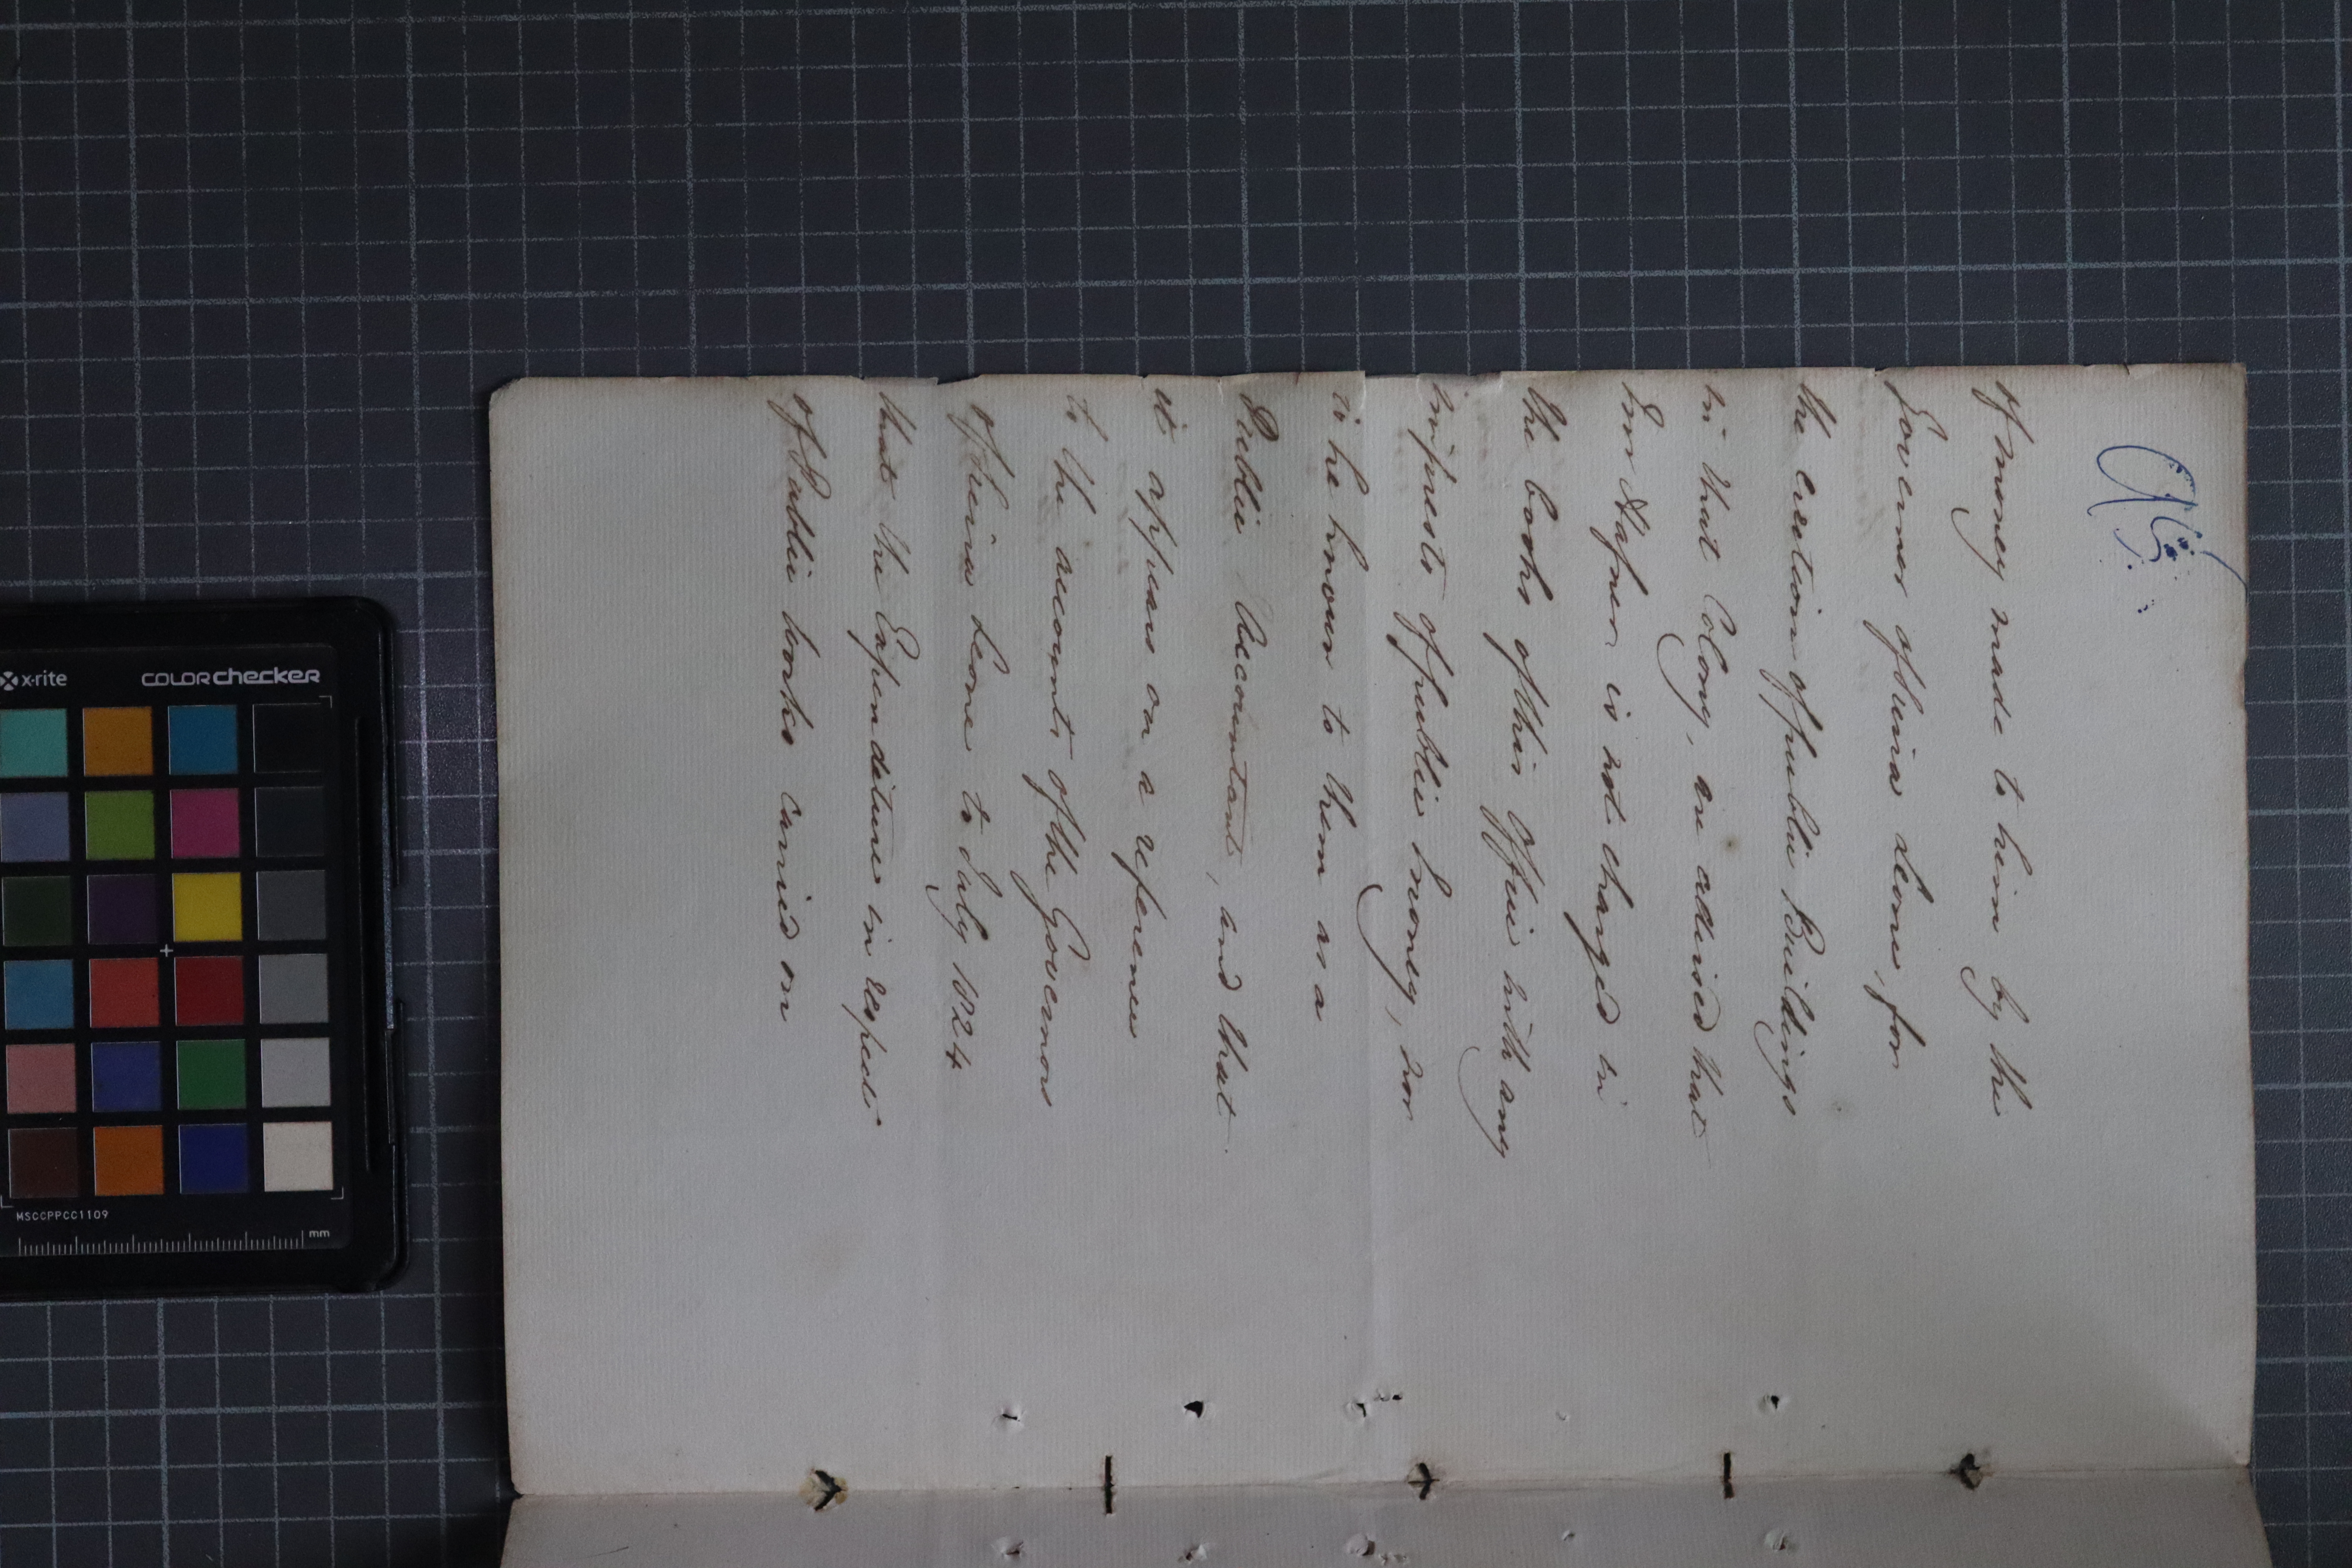 95
of money made to him by the
Governor of Sierra Leone, for
the erection of public Buildings
in that Colony, are advised that
Mr. Hafner is not charged in
the books of this Office with any
imprests of public money, nor
is he known to them as a
Public Accountant, and that
it appears on a reference
to the accounts of the Governor
of Sierra Leone to July 1824
that the Expenditure in respect
of Public Works carried on
x-rite colorchecker
MSCCPPCC1109
mm